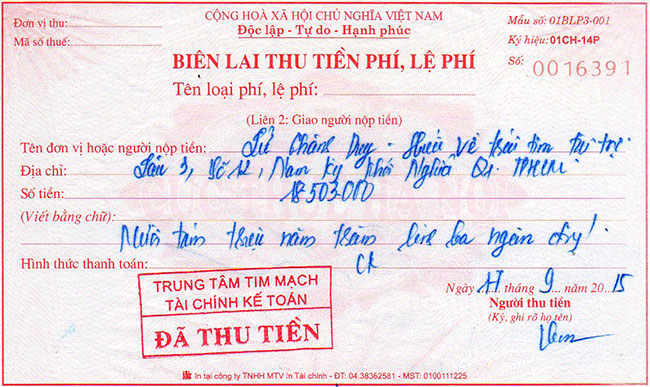 Đơn vị thu:
Mã số thuế:
CỘNG HOÀ XÃ HỘI CHỦ NGHĨA VIỆT NAM
Độc lập - Tự do - Hạnh phúc
Mẫu số: 01BLP3-001
Ký hiệu: 01CH-14P
Số: 0016391
BIÊN LAI THU TIỀN PHÍ, LỆ PHÍ
Tên loại phí, lệ phí:
(Liên 2: Giao người nộp tiền)
Tên đơn vị hoặc người nộp tiền: Duy - về trái tim
Địa chỉ: Lầu 3, Số 12, Nam Kỳ Khởi Nghĩa Q1. TPHCM
Số tiền: 18.503.000
(Viết bằng chữ):
Mười tám triệu năm trăm linh ba ngàn
Hình thức thanh toán: CK
TRUNG TÂM TIM MẠCH
TÀI CHÍNH KẾ TOÁN
ĐÃ THU TIỀN
Ngày tháng 9 năm 2015
Người thu tiền
(Ký, ghi rõ họ tên)
In tại công ty TNHH MTV In Tài chính - ĐT: 04.38362581 - MST: 0100111225